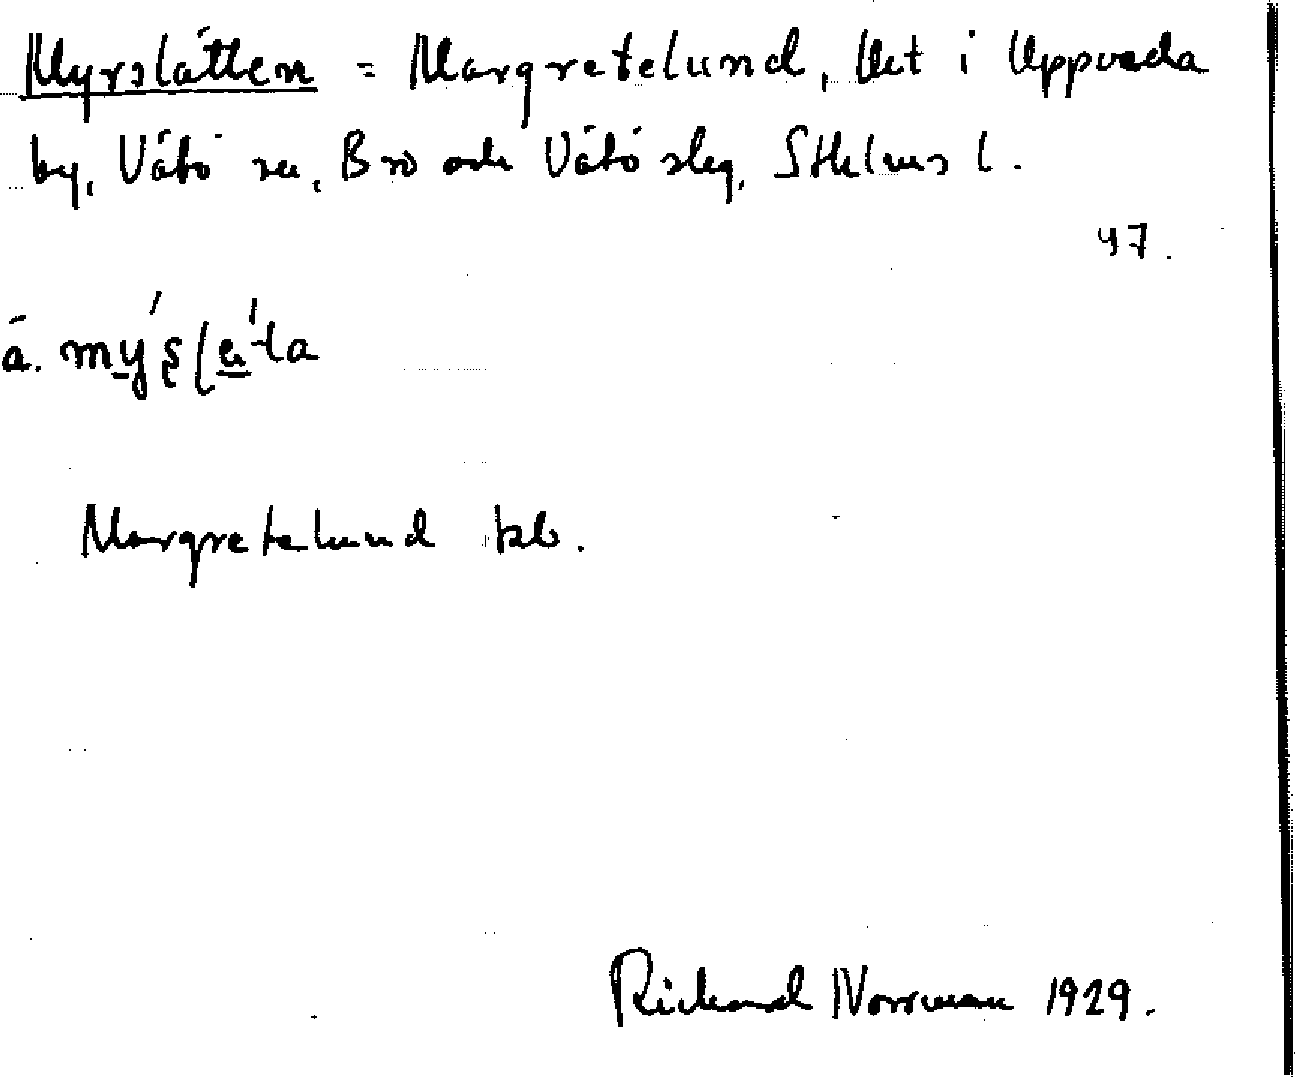 Myrslätten = Margretelund, lht i Uppveda
by, Vätö sn, Bro och Vätö skg, Sthlms l.
47.
å. mý̱s̨l
Margretelund kb.
Rickard Norrman 1929.